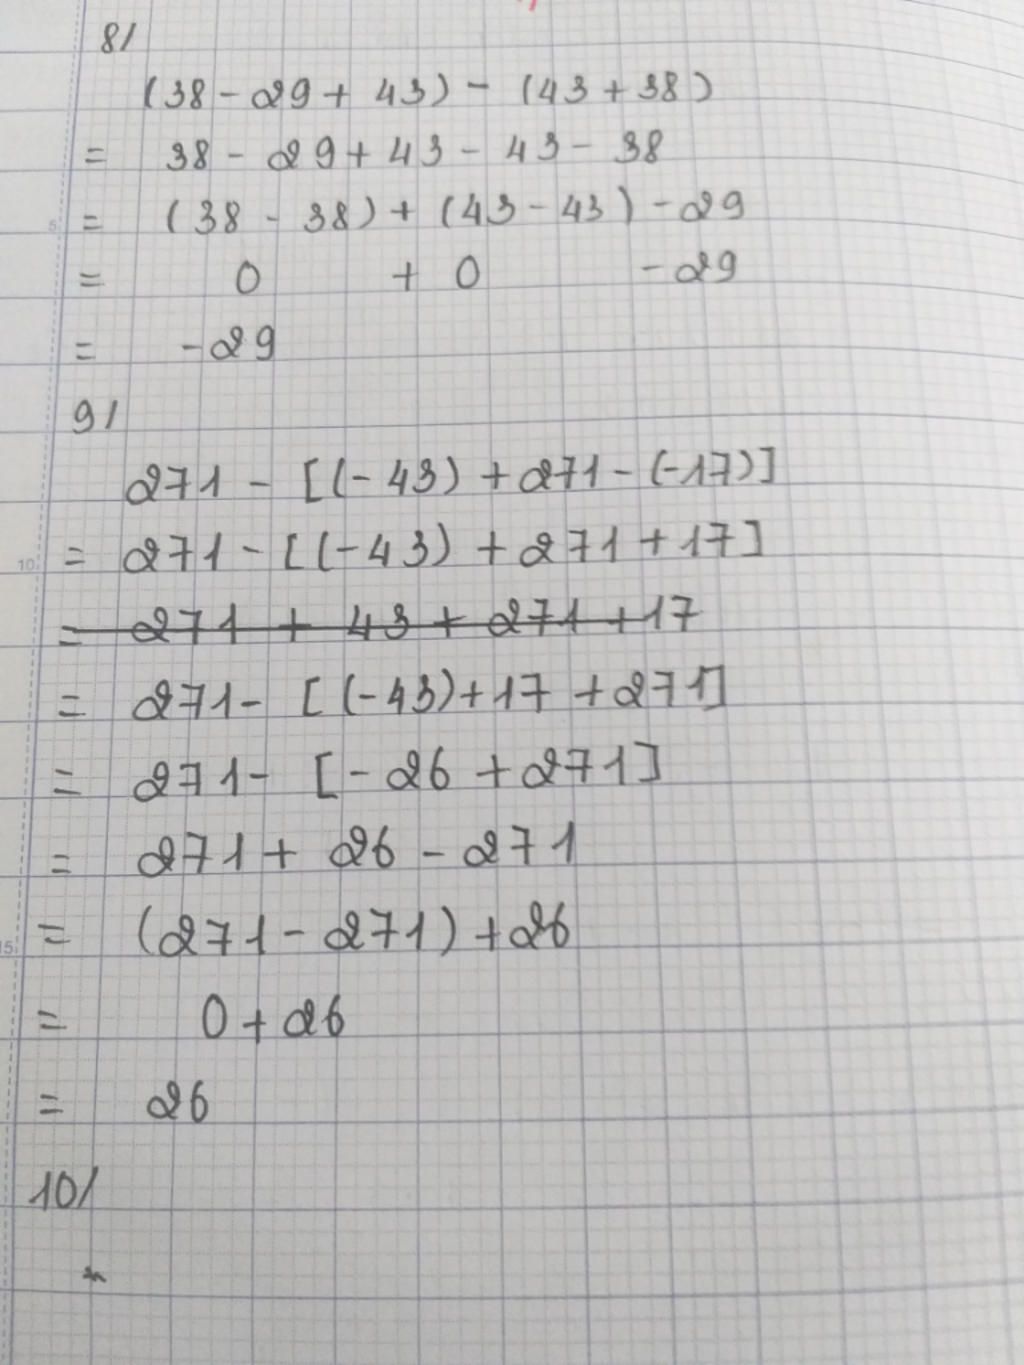 8/
(38 - 29 + 43) - (43 + 38)
= 38 - 29 + 43 - 43 - 38
= (38 - 38) + (43 - 43) - 29
= 0 + 0 - 29
= -29
9/
271 - [(-43) + 271 - (-17)]
= 271 - [(-43) + 271 + 17]
= 271 + 43 + 271 + 17
= 271 - [(-43) + 17 + 271]
= 271 - [-26 + 271]
= 271 + 26 - 271
= (271 - 271) + 26
= 0 + 26
= 26
10/